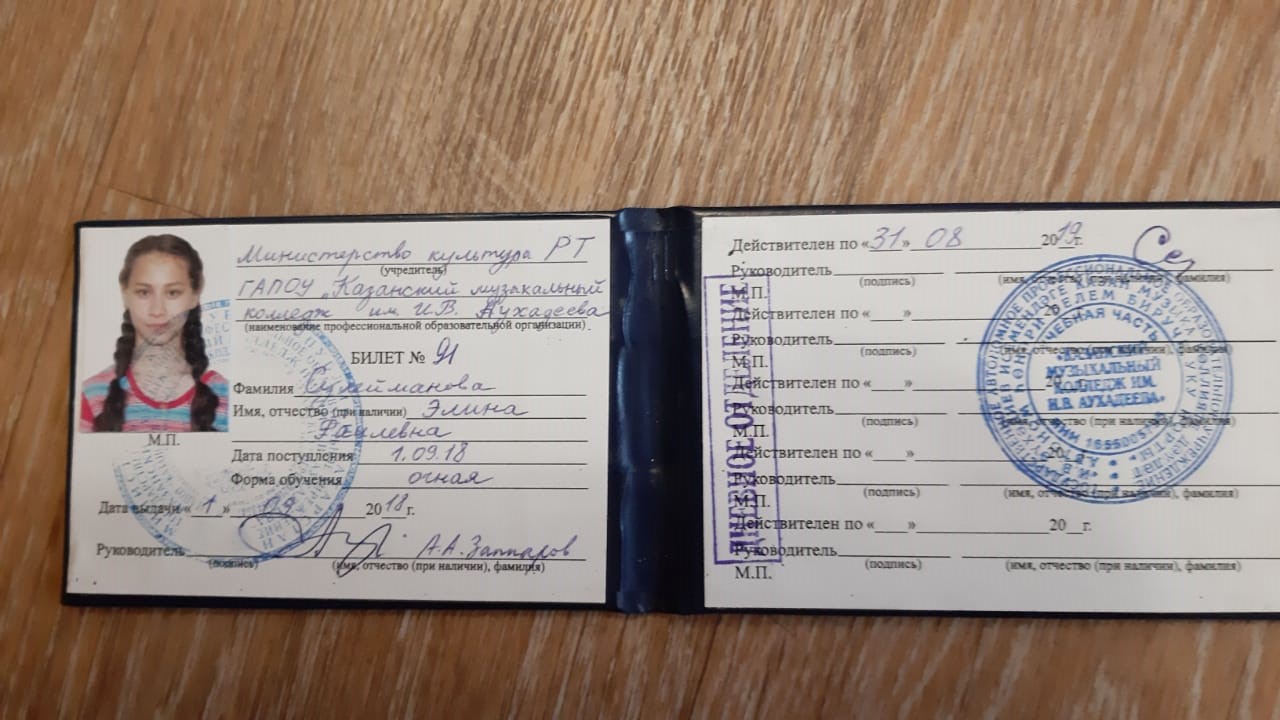 Министерство культура РТ
(учредитель)
ГАПОУ "Казанский музыкальный
колледж им. И.В. Аухадеева
(наименование профессиональной образовательной организации)
БИЛЕТ № 91
Фамилия Сулейманова
Имя, отчество (при наличии) Элина
Раилевна
М.П.
Дата поступления 1.09.18
Форма обучения очная
Дата выдачи «1» 09 2018 г.
Руководитель А.А. Заппаров
(подпись) (имя, отчество (при наличии), фамилия)
Действителен по «31» 08 2019 г.
Руководитель
(подпись) (имя, отчество (при наличии), фамилия)
М.П.
Действителен по «___» 20
Руководитель
(подпись) (имя, отчество (при наличии), фамилия)
М.П.
Действителен по «___» 20
Руководитель
(подпись) (имя, отчество (при наличии), фамилия)
М.П.
Действителен по «___»
Руководитель
(подпись) (имя, отчество (при наличии), фамилия)
М.П.
Действителен по «___» 20 г.
Руководитель
(подпись) (имя, отчество (при наличии), фамилия)
М.П.
ДНЕВНОЕ ОТДЕЛЕНИЕ
УЧЕБНАЯ ЧАСТЬ
МУЗЫКАЛЬНЫЙ
КОЛЛЕДЖ ИМ.
И.В. АУХАДЕЕВА»